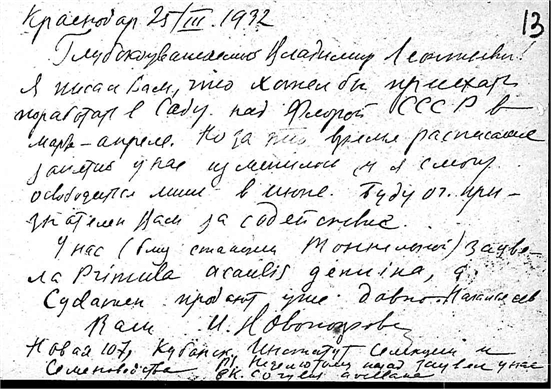 Краснодар 25/III.1932
13
Глубокоуважаемый Владимир Леонтьевич!
Я писал Вам, что хотел бы приехать
поработать в Саду над Флорой СССР в
марте–апреле. Но за это время расписание
занятий у нас изменилось и я смогу
освободиться лишь в июне. Буду оч. при-
знателен Вам за содействие.
У нас (близ станции Тоннельной) зацве-
ла Primula acaulis genuina, а
цветет уже давно.
Ваш И. Новопокровс
Новая 107, Кубанск. Институт Селекции и
Семеноводства
зацвел у нас
avellana